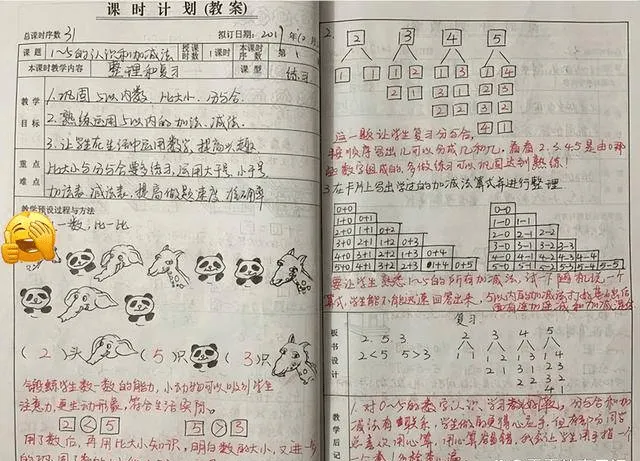 课时计划(教案)
总课时序数 31 拟订日期: 2019年10月
课题 1~5的认识和加减法 授课时数 1课时 本课时序数 第1
本课时教学内容 整理和复习 课型 练习
教学目标
1. 巩固5以内数、比大小、分与合.
2. 熟练运用5以内的加法、减法.
3. 让学生在生活中运用数学, 提高兴趣
重点难点
比大小与分与合要多练习, 运用大于号、小于号,
加法表、减法表, 提高做题速度、准确率
教学预设过程与方法
一数, 比一比
(2)头 (5)只 (3)只
锻炼学生数一数的能力, 小动物可以吸引学生
注意力, 更生动形象, 符合生活实际。
2<5 5>3
用了数后, 再用比大小知识, 明白数的大小, 又进一步
2.
2 3 4 5
1 1 1 2 1 3 1 4
2 1 2 2 2 3
3 1 3 2
4 1
这一题让学生复习分与合,
按顺序写出几可以分成几和几, 看看2.3.4.5是由哪
些数字组成的, 多做练习可以巩固达到熟练!
3 在卡片上写出学过的加减法算式并进行整理
0+0
1+0 0+1
2+0 1+1 0+2
3+0 2+1 1+2 0+3
4+0 3+1 2+2 1+3 0+4
5+0 4+1 3+2 2+3 1+4 0+5
0-0
1-0 1-1
2-0 2-1 2-2
3-0 3-1 3-2 3-3
4-0 4-1 4-2 4-3 4-4
5-0 5-1 5-2 5-3 5-4 5-5
要让学生熟悉1~5的所有加减法, 试一下随机说一个
算式, 学生能不能迅速回答出来, 5以内的加减法
还有连加连减和加减混合
板书设计
复习
2. 5. 3
2<5 5>3
2 3 4 5
1 1 1 2 1 3 1 4
2 1 2 2 2 3
3 1 3 2
4 1
教学后记
1. 对0~5的数字认识、学习都好, 分与合和加
减法有关联系, 学生做的更得心应手, 但有部分同学
总喜欢用心算, 用心算容易错, 我会让学生用手指一个